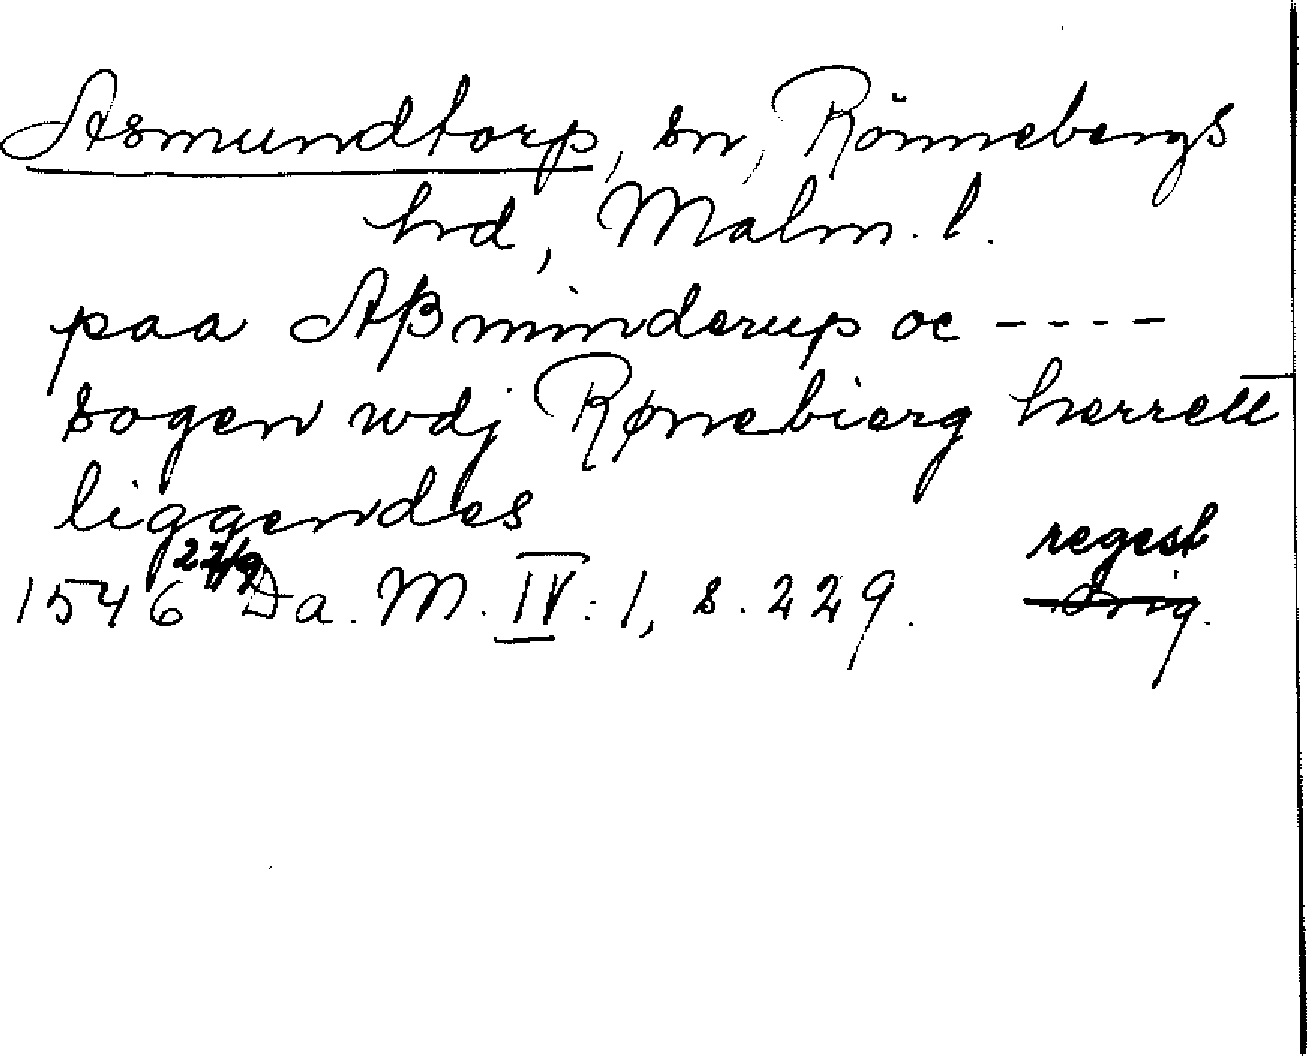 Asmundtorp, sn, Rönnebergs
hd, Malm. l.
paa Aßminderup oc ----
sogen wdj Rønebierg herrett
liggendes
regest
1546 27/9 Da. M. IV: 1, s. 229. Orig.